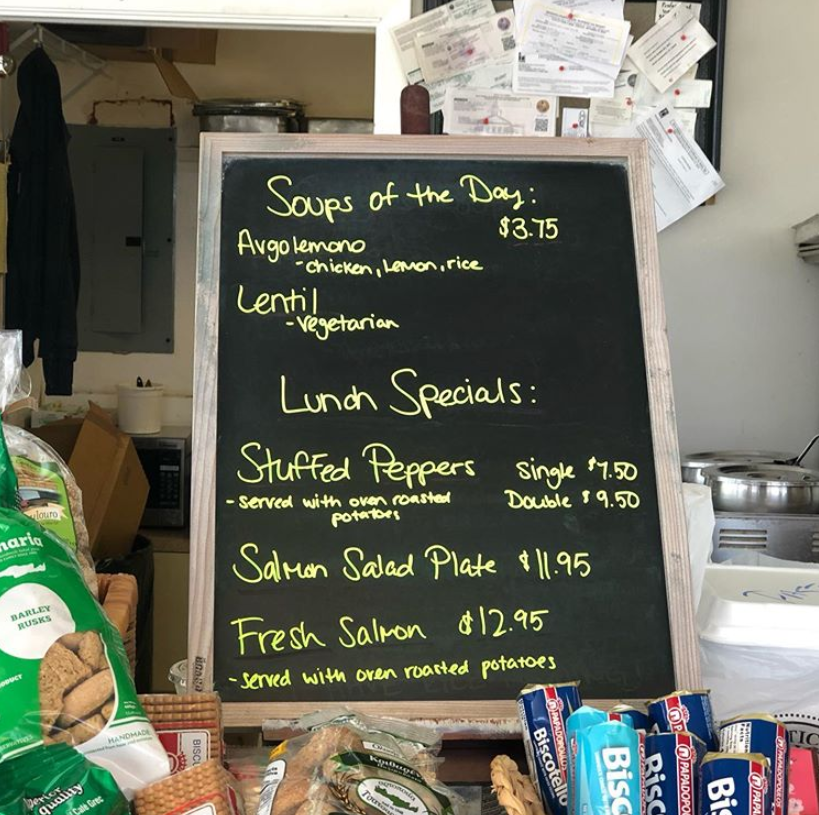 Soups of the Day:
$3.75
Avgolemono
- chicken, Lemon, rice
Lentil
- vegetarian
Lunch Specials:
Stuffed Peppers Single $7.50
- served with oven roasted Double $9.50
potatoes
Salmon Salad Plate $11.95
Fresh Salmon $12.95
- served with oven roasted potatoes
BARLEY
RUSKS
HANDMADE
quality
BISC
Biscotello
PAPADOPOULOU
Bisc
Bisc
PAPADOPO
Bis